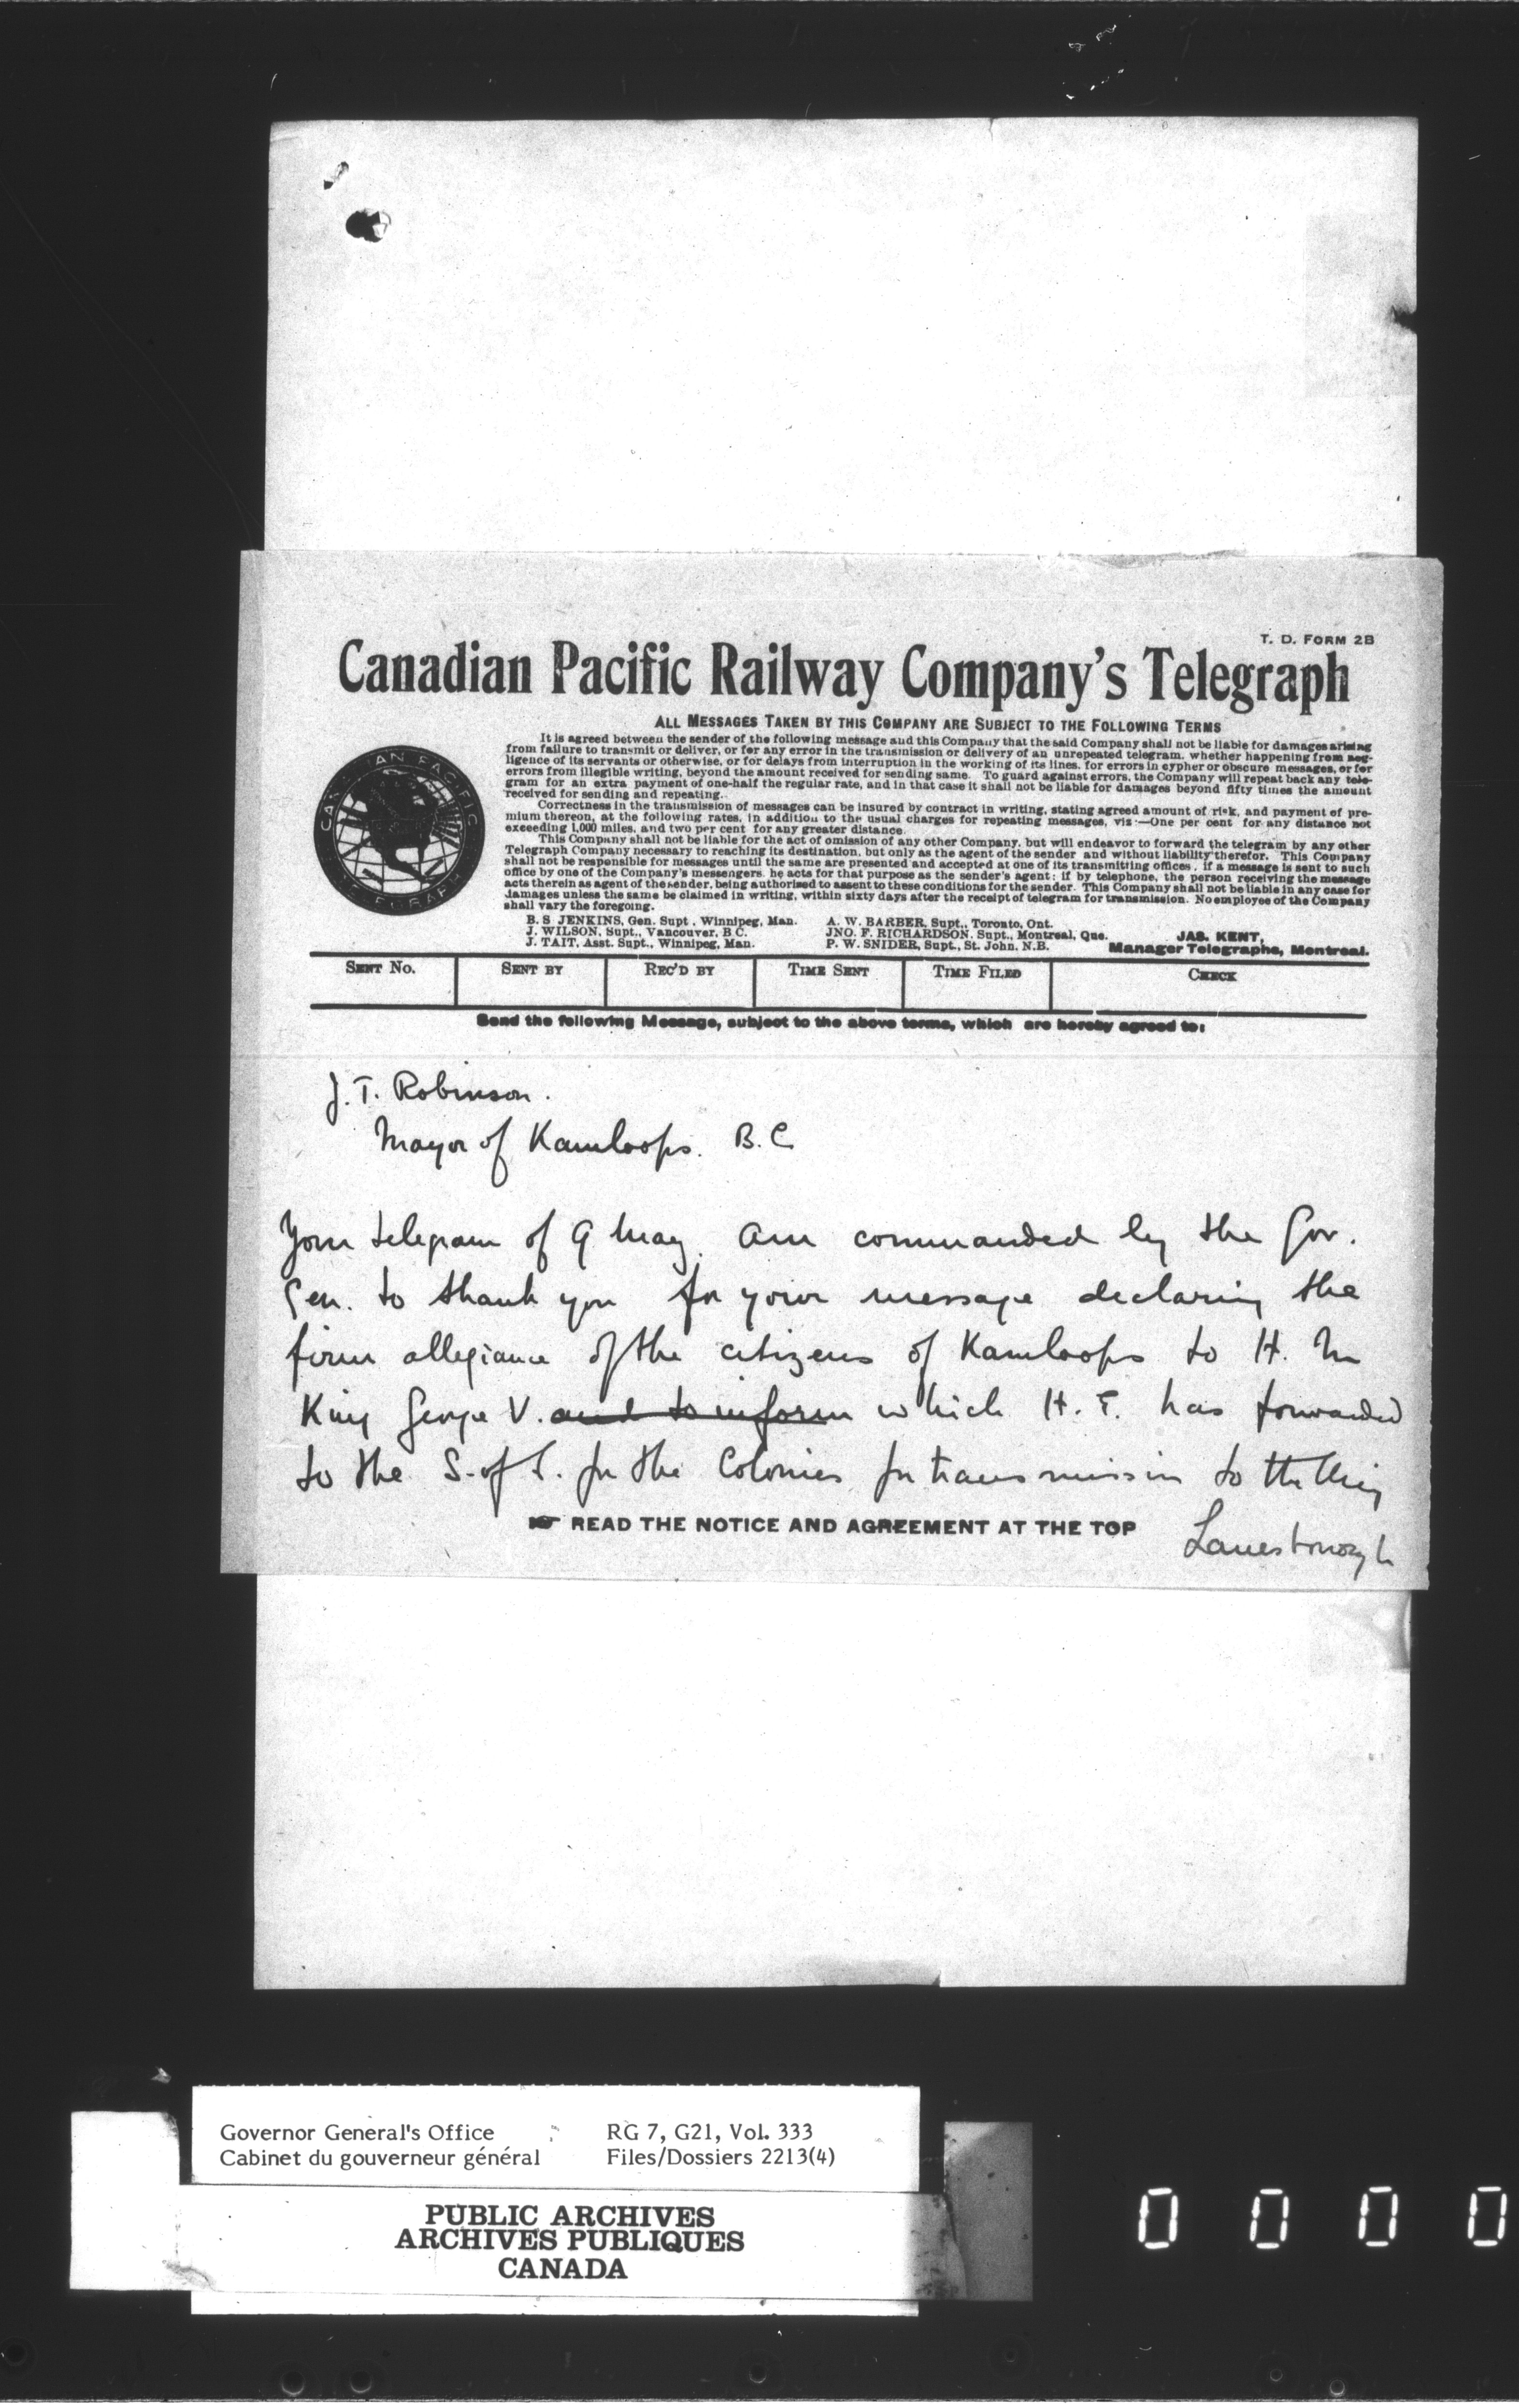 T. D. FORM 2B
Canadian Pacific Railway Company's Telegraph
ALL MESSAGES TAKEN BY THIS COMPANY ARE SUBJECT TO THE FOLLOWING TERMS
It is agreed between the sender of the following message and this Company that the said Company shall not be liable for damages arising
from failure to transmit or deliver, or for any error in the transmission or delivery of an unrepeated telegram, whether happening from neg-
ligence of its servants or otherwise, or for delays from interruption in the working of its lines, for errors in cypher or obscure messages, or for
errors from illegible writing, beyond the amount received for sending same. To guard against errors, the Company will repeat back any tele-
gram for an extra payment of one-half the regular rate, and in that case it shall not be liable for damages beyond fifty times the amount
received for sending and repeating.
Correctness in the transmission of messages can be insured by contract in writing, stating agreed amount of risk, and payment of pre-
mium thereon, at the following rates, in addition to the usual charges for repeating messages, viz:—One per cent for any distance not
exceeding 1,000 miles, and two per cent for any greater distance.
This Company shall not be liable for the act of omission of any other Company, but will endeavor to forward the telegram by any other
Telegraph Company necessary to reaching its destination, but only as the agent of the sender and without liability therefor. This Company
shall not be responsible for messages until the same are presented and accepted at one of its transmitting offices; if a message is sent to such
office by one of the Company's messengers, he acts for that purpose as the sender's agent; if by telephone, the person receiving the message
acts therein as agent of the sender, being authorised to assent to these conditions for the sender. This Company shall not be liable in any case for
damages unless the same be claimed in writing, within sixty days after the receipt of telegram for transmission. No employee of the Company
shall vary the foregoing.
B. S. JENKINS, Gen. Supt., Winnipeg, Man. A. W. BARBER, Supt., Toronto, Ont.
J. WILSON, Supt., Vancouver, B C. JNO. F. RICHARDSON, Supt., Montreal, Que. JAS. KENT,
J. TAIT, Asst. Supt., Winnipeg, Man. P. W. SNIDER, Supt., St. John, N.B. Manager Telegraphs, Montreal.
SENT NO. SENT BY REC'D BY TIME SENT TIME FILED CHECK
Send the following Message, subject to the above terms, which are hereby agreed to:
J. T. Robinson.
Mayor of Kamloops. B.C
Your telegram of 9 May. Am commanded by the Gov.
Gen. to thank you for your message declaring the
firm allegiance of the citizens of Kamloops to H. M
King George V. and to inform which H. E. has forwarded
to the S. of S. for the Colonies for transmission to the King
READ THE NOTICE AND AGREEMENT AT THE TOP
Lanesborough
Governor General's Office RG 7, G21, Vol. 333
Cabinet du gouverneur général Files/Dossiers 2213(4)
PUBLIC ARCHIVES
ARCHIVES PUBLIQUES
CANADA
0 0 0 0